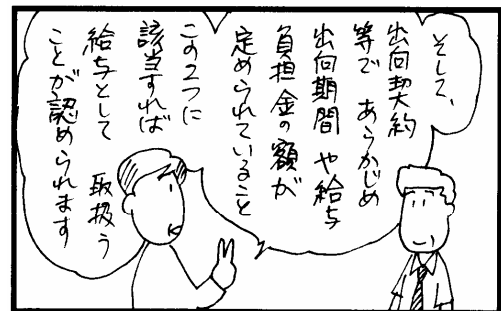 そして、
出向契約
等で あらかじめ
出向期間 や給与
負担金の額が
定められていること
この2つに
該当すれば
給与として 取扱う
ことが認められます